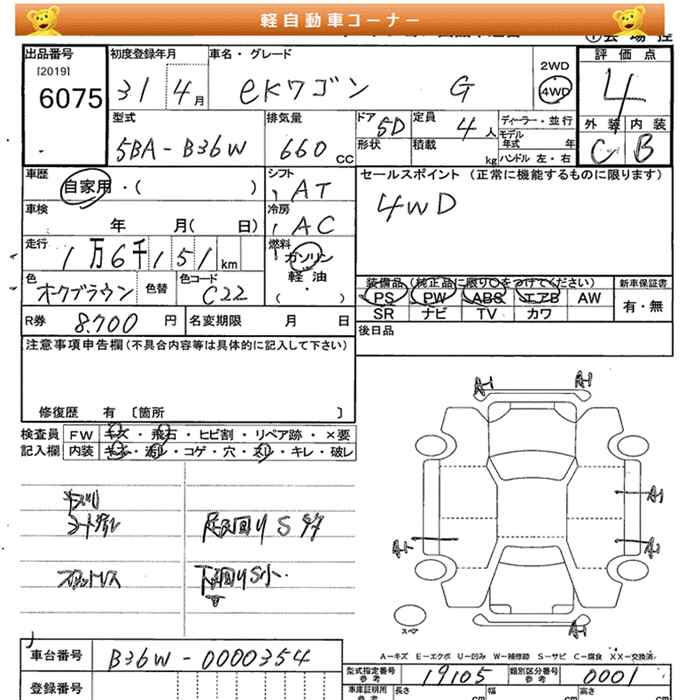 軽自動車コーナー
出品番号 初度登録年月 車名・グレード 評価点
[2019]
6075 31 4月 eKワゴン G 2WD 4WD 4
外装 内装
C B
型式 排気量 ドア 定員 ディーラー・並行
5BA-B36W 660 CC 5D 4人 モデル年式 年
形状 積載 kg ハンドル 左・右
車歴 シフト セールスポイント (正常に機能するものに限ります)
自家用・( ) AT 4WD
車検 冷房
年 月( 日) AC
走行 燃料
1万6千151km ガソリン
軽油
・
( )
色 色替 色コード
オークブラウン C22
装備品 (純正品に限り○をつけてください) 新車保証書
PS PW ABS エアB AW 有・無
SR ナビ TV カワ
R券 8.700 円 名変期限 月 日
後日品
注意事項申告欄(不具合内容等は具体的に記入して下さい)
修復歴 有 〔箇所 〕
検査員 FW キズ・飛石・ヒビ割・リペア跡・×要
記入欄 内装 キズ・汚レ・コゲ・穴・スレ・キレ・破レ
A-1 A-1
A-1
A-1 A-1
足回りSサビ
下回りS小
スペア
A-1
A-キズ E-エクボ U-凹み W-補修跡 S-サビ C-腐食 XX-交換済
車台番号 B36W-0000354
型式指定番号 参考 19105 類別区分番号 参考 0001
登録番号
車庫証明用 参考 長さ cm 幅 cm 高さ cm